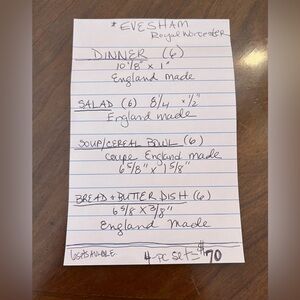 * EVESHAM
Royal Worcester
DINNER (6)
10 1/8" x 1"
England made
SALAD (6) 8 1/4 x 1/2"
England made
SOUP/CEREAL BOWL (6)
Coupe England made
6 5/8" x 1 5/8"
BREAD + BUTTER DISH (6)
6 5/8 x 3/8"
England Made
4 pc set = $70